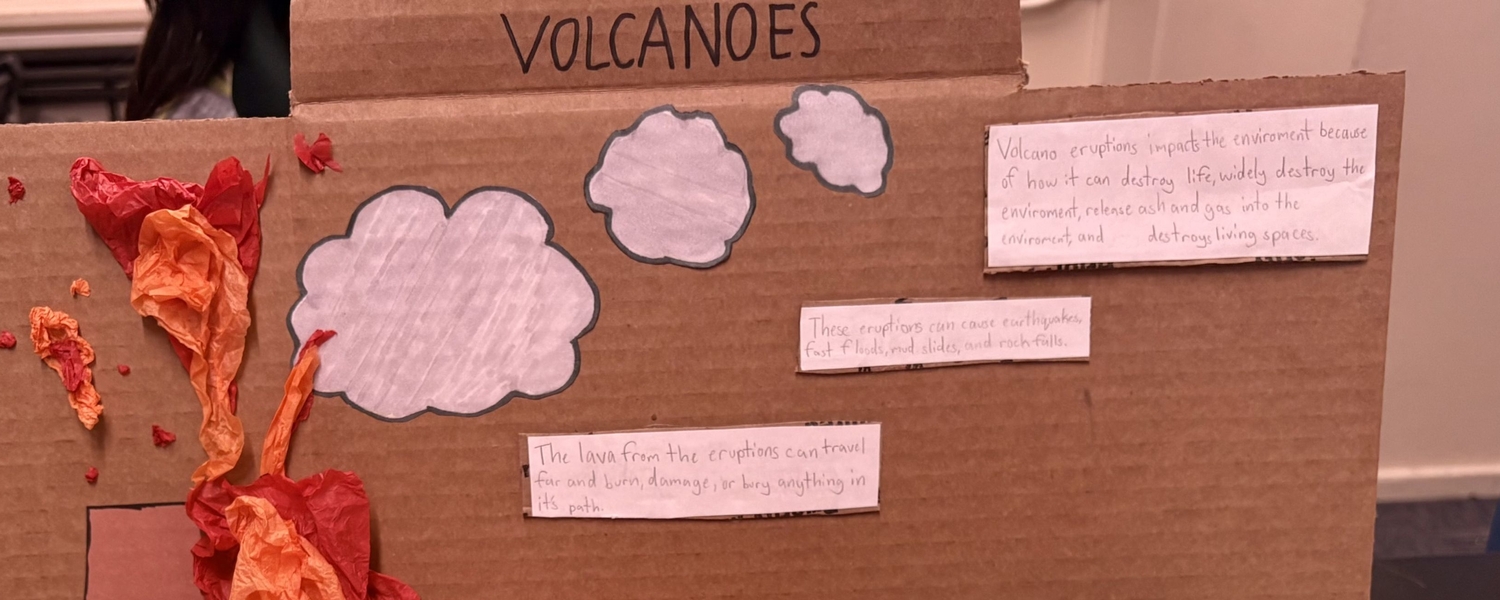 VOLCANOES
Volcano eruptions impacts the enviroment because
of how it can destroy life, widely destroy the
enviroment, release ash and gas into the
enviroment, and destroys living spaces.
These eruptions can cause earthquakes,
fast floods, mud slides, and rock falls.
The lava from the eruptions can travel
far and burn, damage, or bury anything in
it's path.